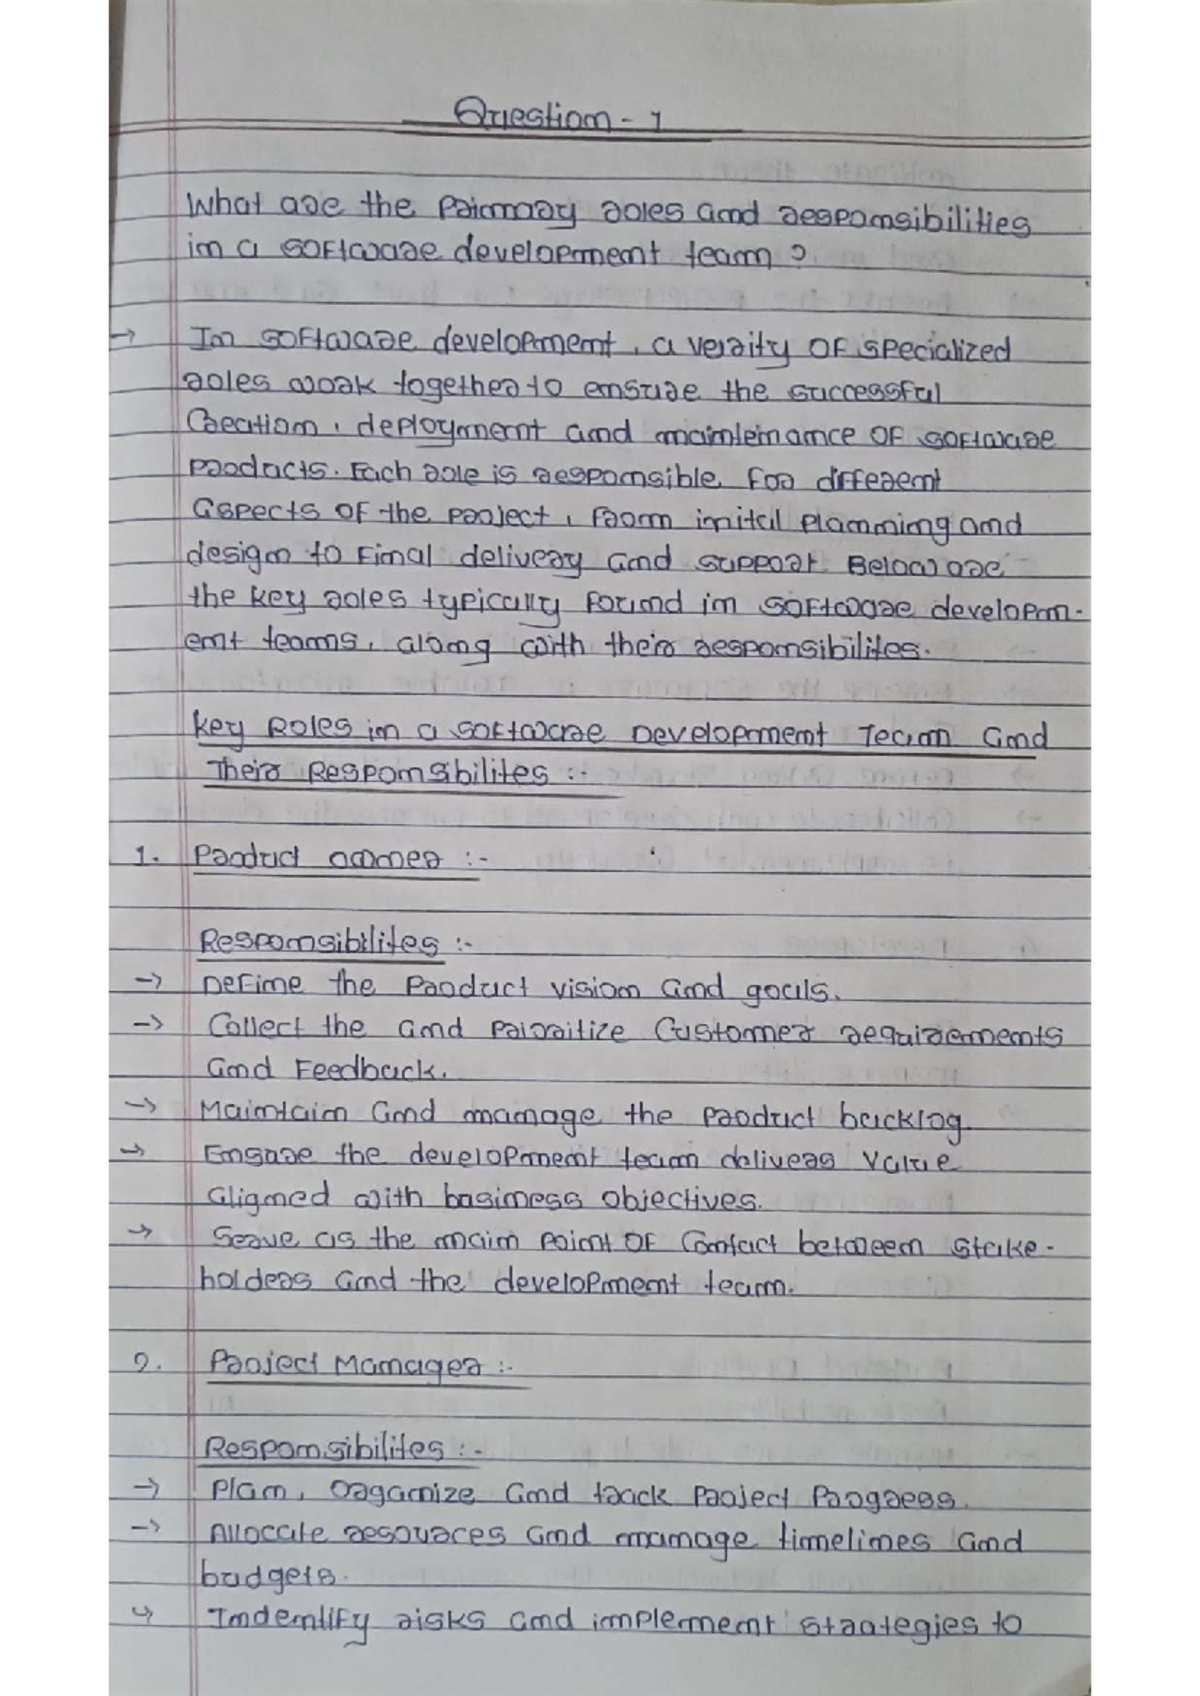 Question - 1
What are the primary roles and responsibilities
in a software development team ?
→ In software development, a verity of specialized
roles work together to ensure the successful
Creation, deployment and maintenance of software
products. Each role is responsible for different
aspects of the project, from initil planning and
design to final delivery and support. Below are
the key roles typically found in software developm-
ent teams, along with their responsibilites.
Key Roles in a software Development Team and
Their Responsibilites :-
1. Product owner :-
Responsibilites :-
→ Define the product vision and goals.
→ Collect the and prioritize customer requirements
and feedback.
→ Maintain and manage the product backlog.
→ Ensure the development team delivers value
aligned with business objectives.
→ Serve as the main point of contact between stake-
holders and the development team.
2. Project Manager :-
Responsibilites :-
→ Plan, organize and track project progress.
→ Allocate resources and manage timelines and
budgets.
→ Indentify risks and implement strategies to